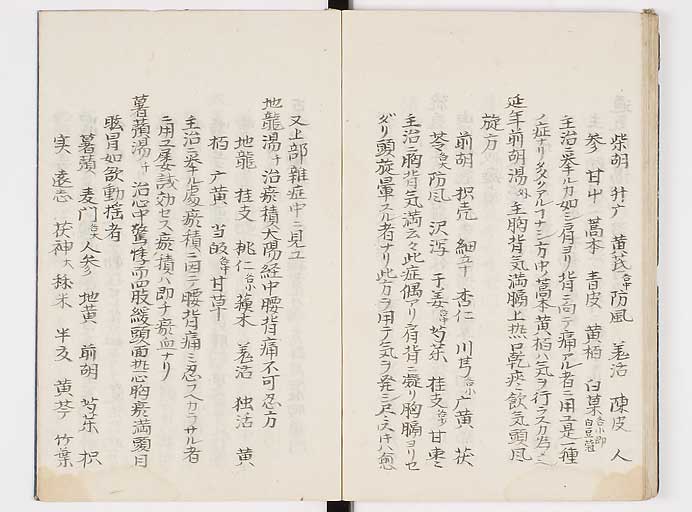 柴胡 升广 黄芪各中 防風 羗活 陳皮 人
参 甘中 蒿本 青皮 黄栢 白菓各小即白豆蔲
主治ニ挙ル如シ肩ヨリ背ニ向テ痛アル者ニ用ユ是一種
ノ症ナリ 方中ノ蒿本黄栢ハ気ヲ行ラス
延年前胡湯外 主胸背気満膈上熱口乾痰飲気頭風
旋方
前胡 枳売 細五十 杏仁 川芎各小 广黄 茯
苓各大 防風 沢泻 干姜各中 芍薬 桂支各少 甘枣々
主治ニ胸背気満云々此症偶アリ肩背ニ凝リ胸膈ヨリセ
ガリ頭旋暈スル者ナリ此方ヲ用テ気ヲ発シ尽 愈
又上部雜症中ニ見ユ
地龍湯寸 治瘀積太陽経中腰背痛不可忍方
地龍 桂支 桃仁各小 蘓木 羗活 独活 黄
栢 广黄 当皈各中 甘草十
主治ニ挙ル處瘀積ニ因テ腰背痛ミ忍フヘカラサル者
ニ用ユ屡試効セス瘀積ハ即チ瘀血ナリ
薯蕷湯千 治心中驚悸而四肢緩頭面热心胸痰満頭目
眩冒如欲動揺者
薯蕷 麦門各大 人参 地黄 前胡 芍薬 枳
実 遠志 茯神大 秫米 半夏 黄芩 竹葉